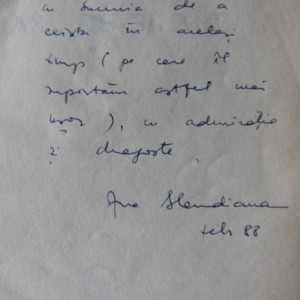 cu bucuria de a
exista în același
timp (pe care îl
suportăm astfel mai
ușor), cu admirație
și dragoste
Ana Blandiana
febr 88